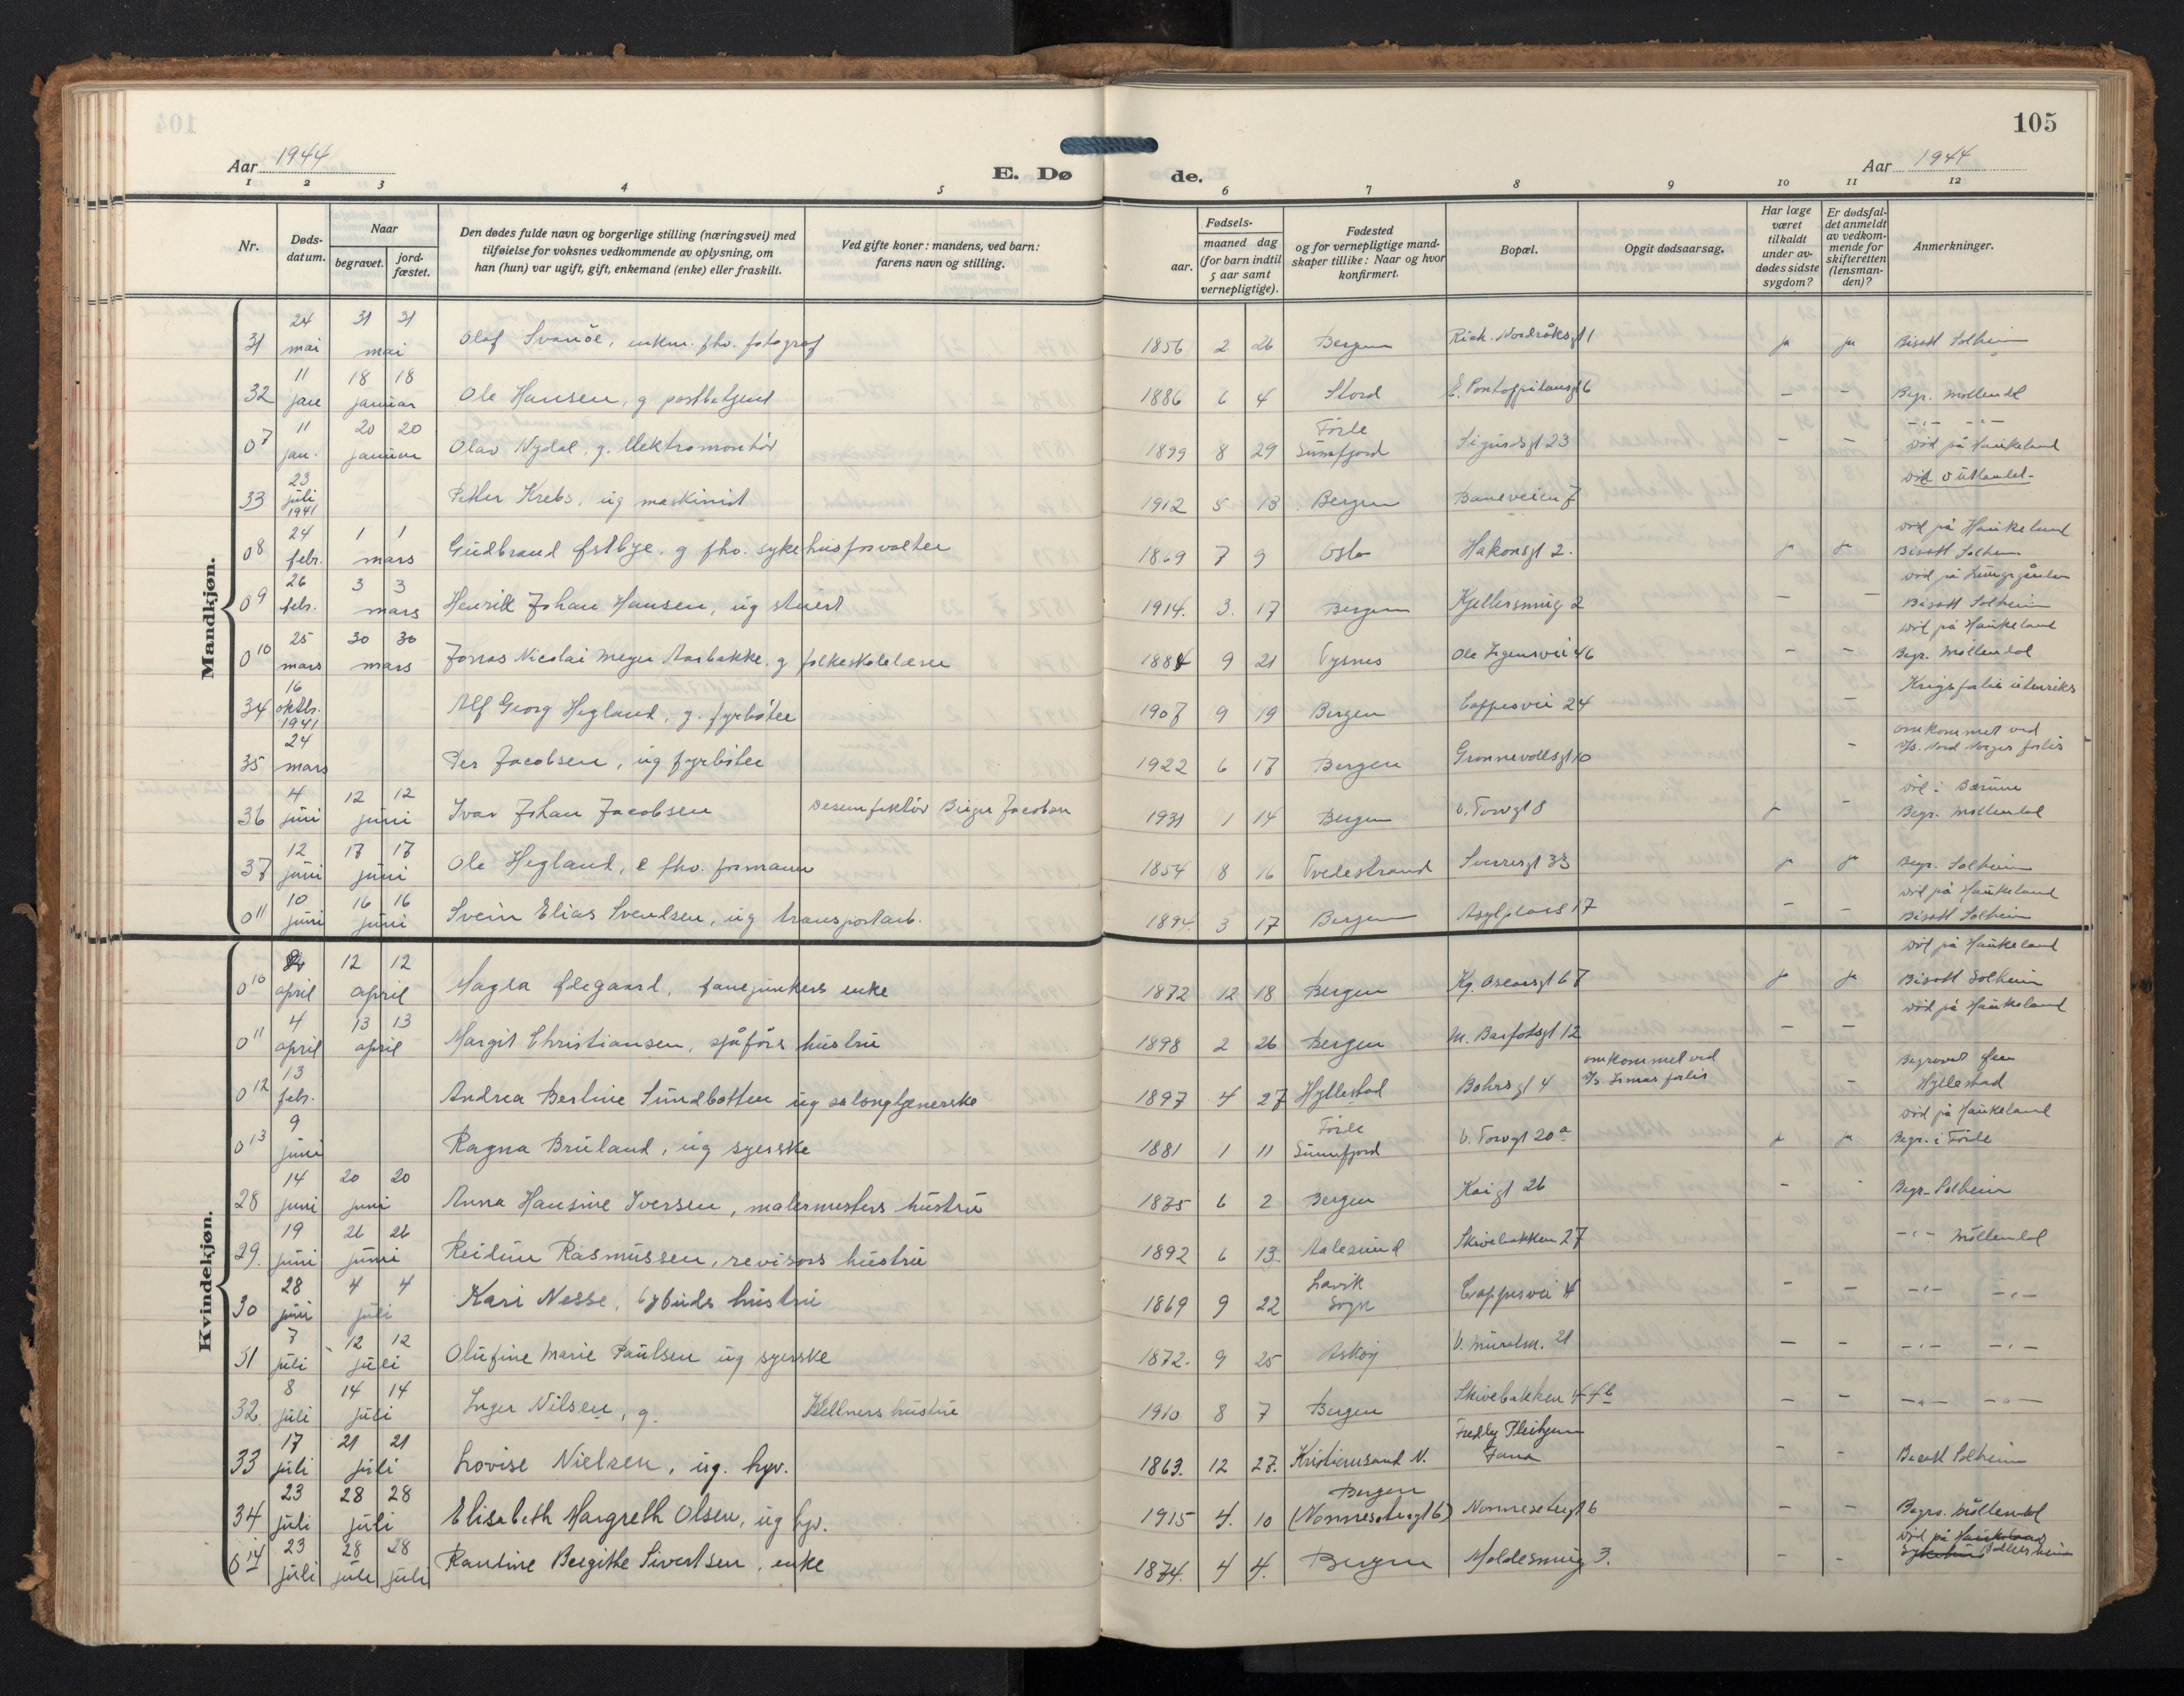 105
Aar 1944
E. Dø
de.
Aar 1944
1 2 3 4 5 6 7 8 9 10 11 12
Nr.
Døds-
datum.
Naar
begravet.
jord-
fæstet.
Den dødes fulde navn og borgerlige stilling (næringsvei) med
tilføielse for voksnes vedkommende av oplysning, om
han (hun) var ugift, gift, enkemand (enke) eller fraskilt.
Ved gifte koner: mandens, ved barn:
farens navn og stilling.
Fødsels-
aar.
maaned dag
(for barn indtil
5 aar samt
vernepligtige).
Fødested
og for vernepligtige mand-
skaper tillike: Naar og hvor
konfirmert.
Bopæl.
Opgit dødsaarsag.
Har læge
været
tilkaldt
under av-
dødes sidste
sygdom?
Er dødsfal-
det anmeldt
av vedkom-
mende for
skifteretten
(lensman-
den)?
Anmerkninger.
Mandkjøn.
31 24 mai 31 31 mai Olaf Svanöe, enkm. fhv. fotograf 1856 2 26 Bergen Rich. Nordråksgt 1 ja ja Bisatt Solheim
32 11 jan 18 18 januar Ole Hansen, g postbetjent 1886 6 4 Stord E. Pontoppidansgt 6 - - Begr. Möllendal
07 11 jan. 20 20 januar Olav Nydal, g. elektromontör 1899 8 29 Förde Sunnfjord Sigurdsgt 23 - - -"- -"- död på Haukeland
33 23 juli 1941 Petter Krebs, ug maskinist 1912 5 13 Bergen Baneveien 7 död i utlandet.
08 24 febr. 1 1 mars Gudbrand Østbye, g fhv. sykehusforvalter 1869 7 9 Oslo Hakonsgt 2. ja ja död på Haukeland Bisatt Solheim
09 26 febr. 3 3 mars Henrik Johan Hansen, ug stuert 1914. 3. 17 Bergen Kjellersmug 2 - - död på Lungegården Bisatt Solheim
010 25 mars 30 30 mars Jonas Nicolai Meyer Aarbakke, g folkeskolelærer 1884 9 21 Tysnes Ole Irgensvei 46 - - död på Haukeland Begr. Möllendal
34 16 oktbr. 1941 Alf Georg Hegland, g. fyrböter 1907 9 19 Bergen Cappesvei 24 - Krigsforlis utenriks
35 24 mars Per Jacobsen, ug fyrböter 1922 6 17 Bergen Grönnevollsgt 10 - omkommet ved D/S. Nord Norges forlis
36 4 juni 12 12 juni Ivar Johan Jacobsen Desinfektör Birger Jacobsen 1931 1 14 Bergen V. Torvgt 8 ja - död i Bærum Begr. Möllendal
37 12 juni 17 17 juni Ole Hegland, e fhv. formann 1854 8 16 Tvedestrand Sverresgt 33 ja ja Begr. Solheim
011 10 juni 16 16 juni Svein Elias Svendsen, ug transportarb. 1894. 3 17 Bergen Asylplass 17 - - död på Haukeland Bisatt Solheim
Kvindekjøn.
010 april 12 12 april Magda Ødegaard, fanejunkers enke 1872 12 18 Bergen Kg. Oscarsgt 67 ja ja död på Haukeland Bisatt Solheim
011 4 april 13 13 april Margit Christiansen, sjåförs hustru 1898 2 26 Bergen M. Barfotsgt 12 - - död på Haukeland
012 13 febr. Andrea Berline Sundbotten ug salongtjenerske 1897 4 27 Hyllestad Bohrsgt 4 omkommet ved D/S Irmas forlis - Begravet fra Hyllestad
013 9 juni Ragna Bruland, ug syerske 1881 1 11 Förde Sunnfjord V. Torvgt 20a ja ja död på Haukeland Begr. i Förde
28 14 juni 20 20 juni Anna Hansine Iversen, malermesters hustru 1875 6 2 Bergen Kaigt 26 - - Begr. Solheim
29. 19 juni 26 26 juni Reidun Rasmussen, revisors hustru 1892 6 13. Aalesund Skivebakken 27 -"- Möllendal
30 28 juni 4 4 juli Kari Nesse, bybuds hustru 1869 9 22 Lavik Sogn Cappesvei 4 - - -"- -"-
31 7 juli 12 12 juli Olufine Marie Paulsen ug syerske 1872. 9 25 Askøy V. Muralm. 21 - - -"- -"-
32. 8 juli 14 14 juli Inger Nilsen, g. Kellners hustru 1910 8 7 Bergen Skivebakken 44b - - -"- -"-
33 17 juli 21 21 juli Lovise Nielsen, ug. hgv. 1863. 12 27. Kristiansand N. Fredly Pleiehjem Fana - - Bisatt Solheim
34 23 juli 28 28 juli Elisabeth Margreth Olsen, ug hgv. 1915 4. 10 Bergen (Nonnesetergt 6) Nonnesetergt 6 - - Begrv. Möllendal
014 23 juli 28 28 juli juli Pauline Bergithe Sivertsen, enke 1874. 4 4. Bergen Moldesmug 3. - - död på Haukeland Sykehus